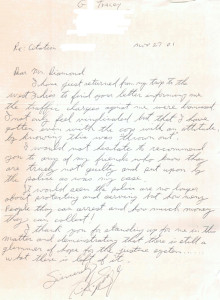 G. Tracy
Re: Citation
Nov 27 01
Dear Mr. Diamond
I have just returned from my trip to the
west to find your letter informing me
the traffic charges against me were
I not only feel vindicated, but that I have
gotten even with the cop with an attitude
by knowing this was thrown out.
I would not hesitate to recommend
you to any of my friends who know they
are truly not guilty and put upon by
the police as was my case.
It would seem the police are no longer
about protecting and serving but how many
people they can arrest and how much money
they can collect!
I thank you for standing up for me in this
matter and demonstrating that there is still a
glimmer of hope for the justice system.....
what there is left of it.
Sincerely